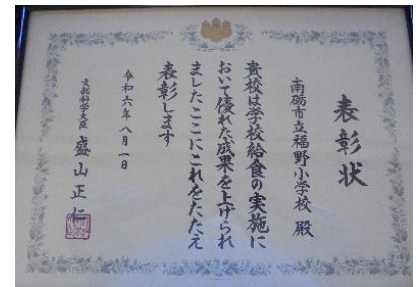 表彰状
南砺市立福野小学校 殿
貴校は学校給食の実施に
おいて優れた成果を上げられ
ましたここにこれをたたえ
表彰します
令和六年八月一日
文部科学大臣 盛山正仁